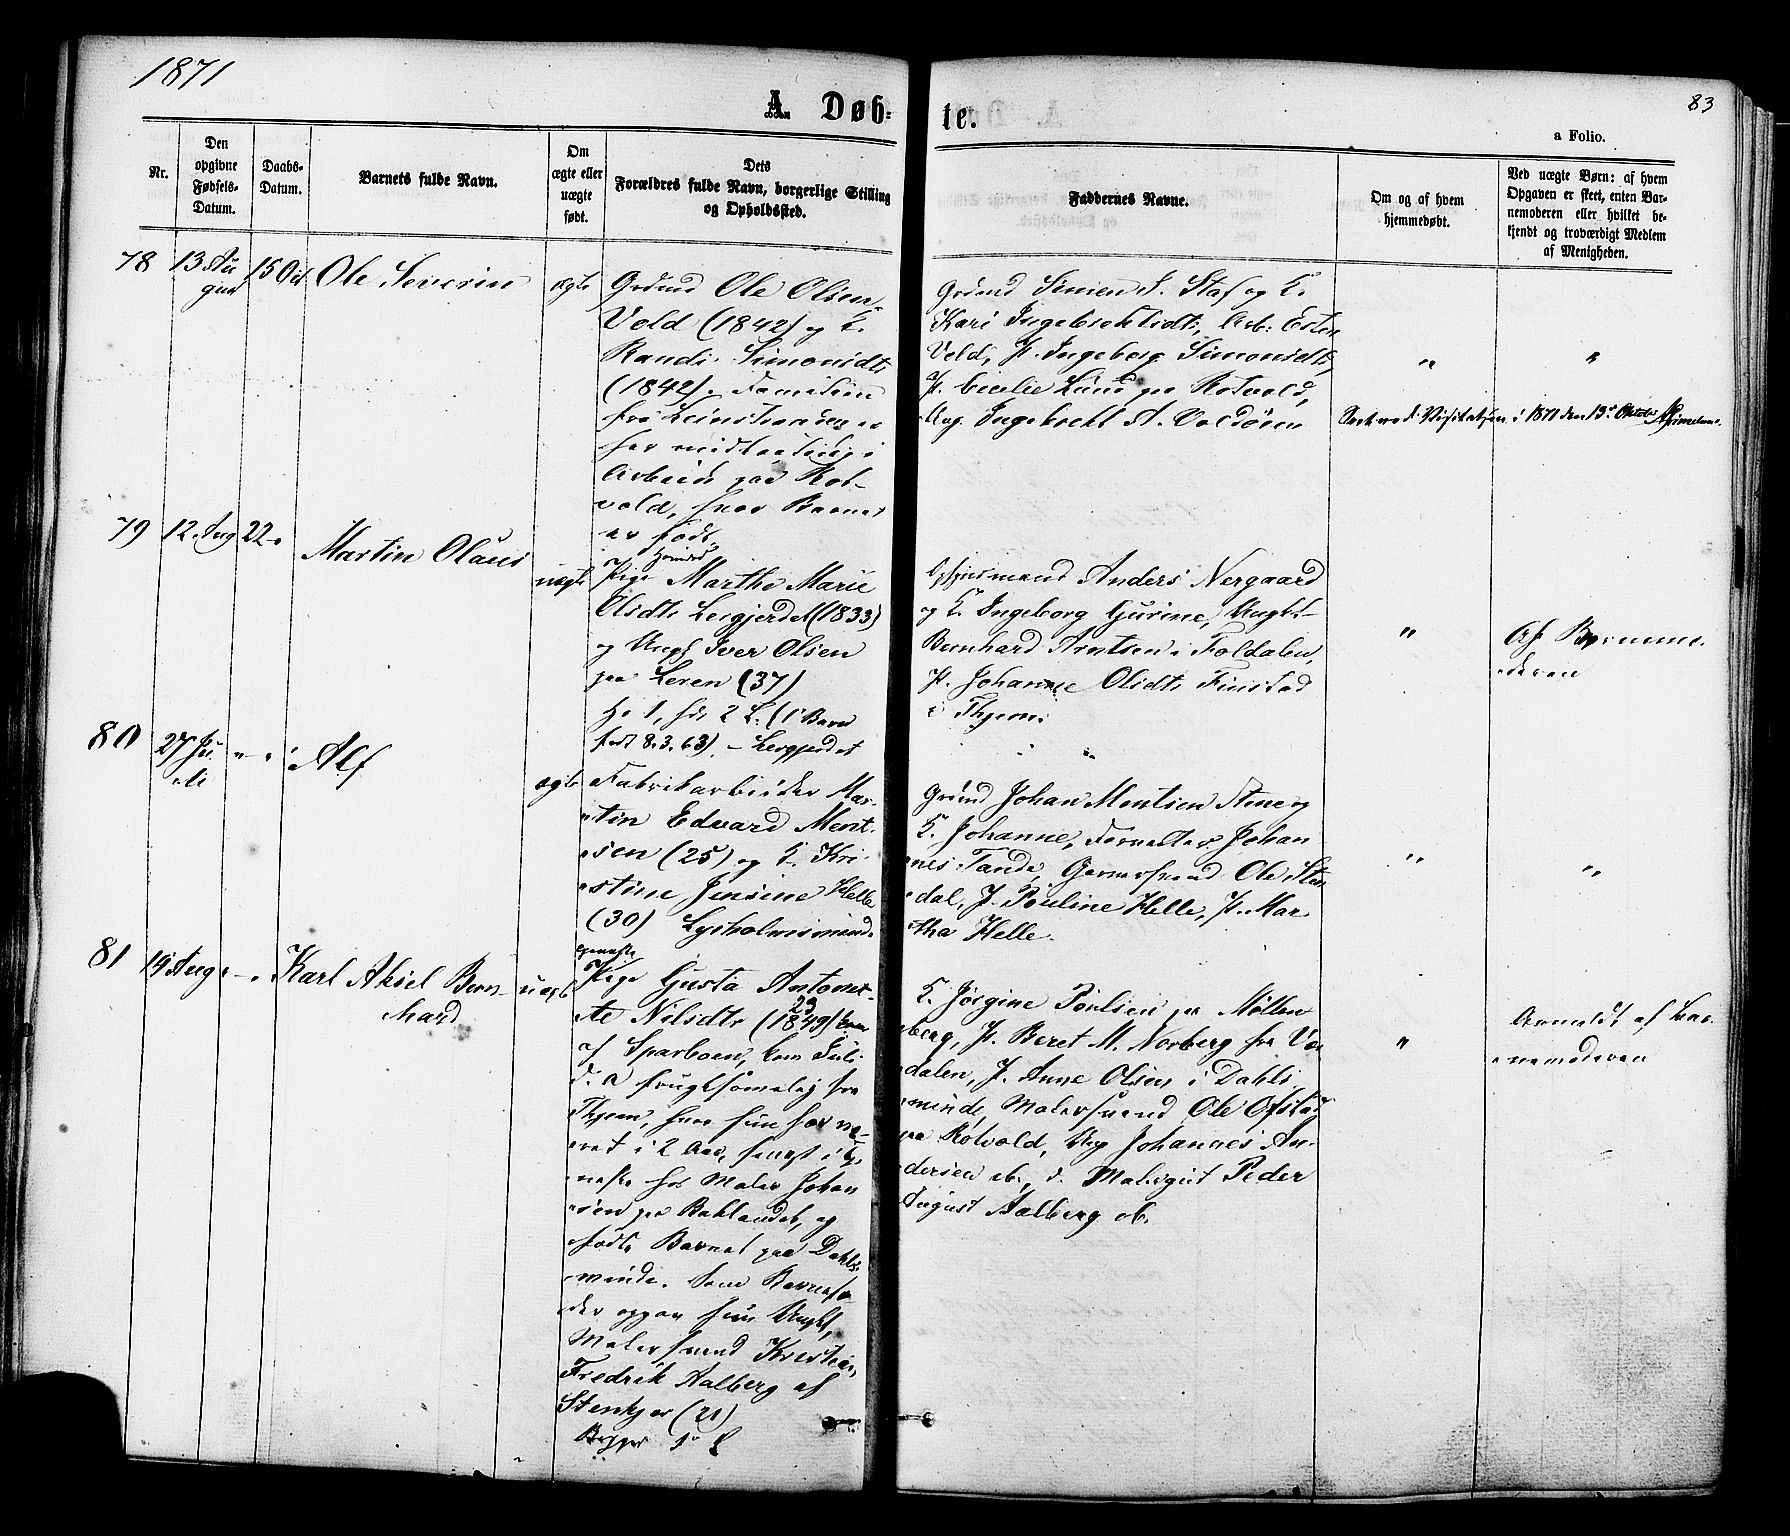 1871
A. Døb-
te.
83
a Folio.
Nr.
Den opgivne Fødsels-Datum.
Daabs-Datum.
Barnets fulde Navn.
Om ægte eller uægte født.
Dets Forældres fulde Navn, borgerlige Stilling og Opholdssted.
Faddernes Navne.
Om og af hvem hjemmedøbt.
Ved uægte Børn: af hvem Opgaven er skeet, enten Barnemoderen eller hvilket bekjendt og troværdigt Medlem af Menigheden.
78
13 Au
gust
15 Oct
Ole Severin
ægte
Grdmd Ole Olsen
Vold (1842) og K.
Randi Simonsdtr
(1842), Familien
fra Leinstranden er
her midlertidig i
Arbeid paa Rot-
vold, hvor Barnet
er født.
Grdmd Simen J. Staf og K.
Kari Ingebrektsdtr, Arb. Esten
Vold, P. Ingeborg Simonsdtr,
P. Cecilie Lund paa Rotvold,
Ung. Ingebrekt A. Voldsören
"
"
i 1871 den 13de Oktober
79
12 Aug
22
Martin Olaus
uægte
Pige Marthe Marie
Olsdtr Lergjerdet (1833)
og Ungk. Iver Olsen
paa Leren (37)
H. 1, hds 2 L. (1' Barn
født 8.3.63). - Lergjerdet
mand Anders Nergaard
og K. Ingeborg Gurine, Ungk.
Bernhard Arntsen i Foldalen,
P. Johanne Olsdtr Finstad
i Thjem.
"
Af Barnemo-
deren
80
27 Ju
li
" - "
Alf
ægte
Fabrikarbeider Mar-
tin Edvard Ment-
sen (25) og K. Kri-
stine Jensine Helle
(30) Lysholmsminde
Grdmd Johan Mentsen Stene og
K. Johanne, Forvalter Johan
nes Tande, Garversvend Ole Sten
dal, P. Pauline Helle, P. Mar
tha Helle.
"
"
81
19 Aug
- "
Karl Aksel Bern
hard
uægte
Pige Gusta Antonet-
te Nilsdtr (1849) 23
af Sparboen, kom Juli
d. A. frugtsommelig fra
Thjem, hvor hun har væ-
ret i 2 Aar, senest i Tje-
neste hos Maler Johan
sen paa Baklandet, og
fødte Barnet paa Dahls-
minde. Som Barnefa-
der opgav hun Ungk.
Malersvend Kristian
Fredrik Aalberg af
Stenkjær (21)
K. Jørgine Poulsen paa Møllen
berg, P. Beret M. Norberg fra Vær
dalen, P. Anne Olsen i Dahls
minde, Malersvend Ole Ofstad
paa Rotvold, Ung Johannes An-
dersen ib., d. Malergut Peder
August Aalberg ib.
"
Anmeldt af Bar-
nemoderen